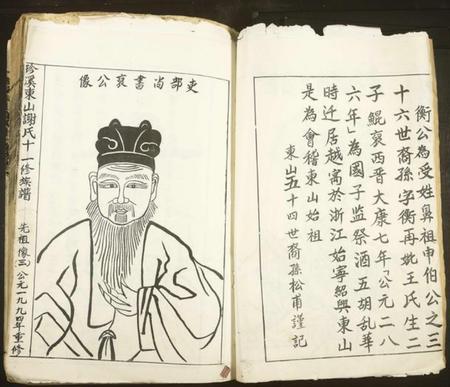 衡公為受姓鼻祖申伯公之三
十六世裔孫字衡再妣王氏生二
子鯤裒西晉大康七年「公元二八
六年」為國子監祭酒五胡亂華
時迁居越寓於浙江始寧紹興東山
是為會稽東山始祖
東山五十四世裔孫松甫謹記
吏部尚書裒公像
珍溪東山謝氏十一修族譜
先祖像(三)公元一九九四年重修